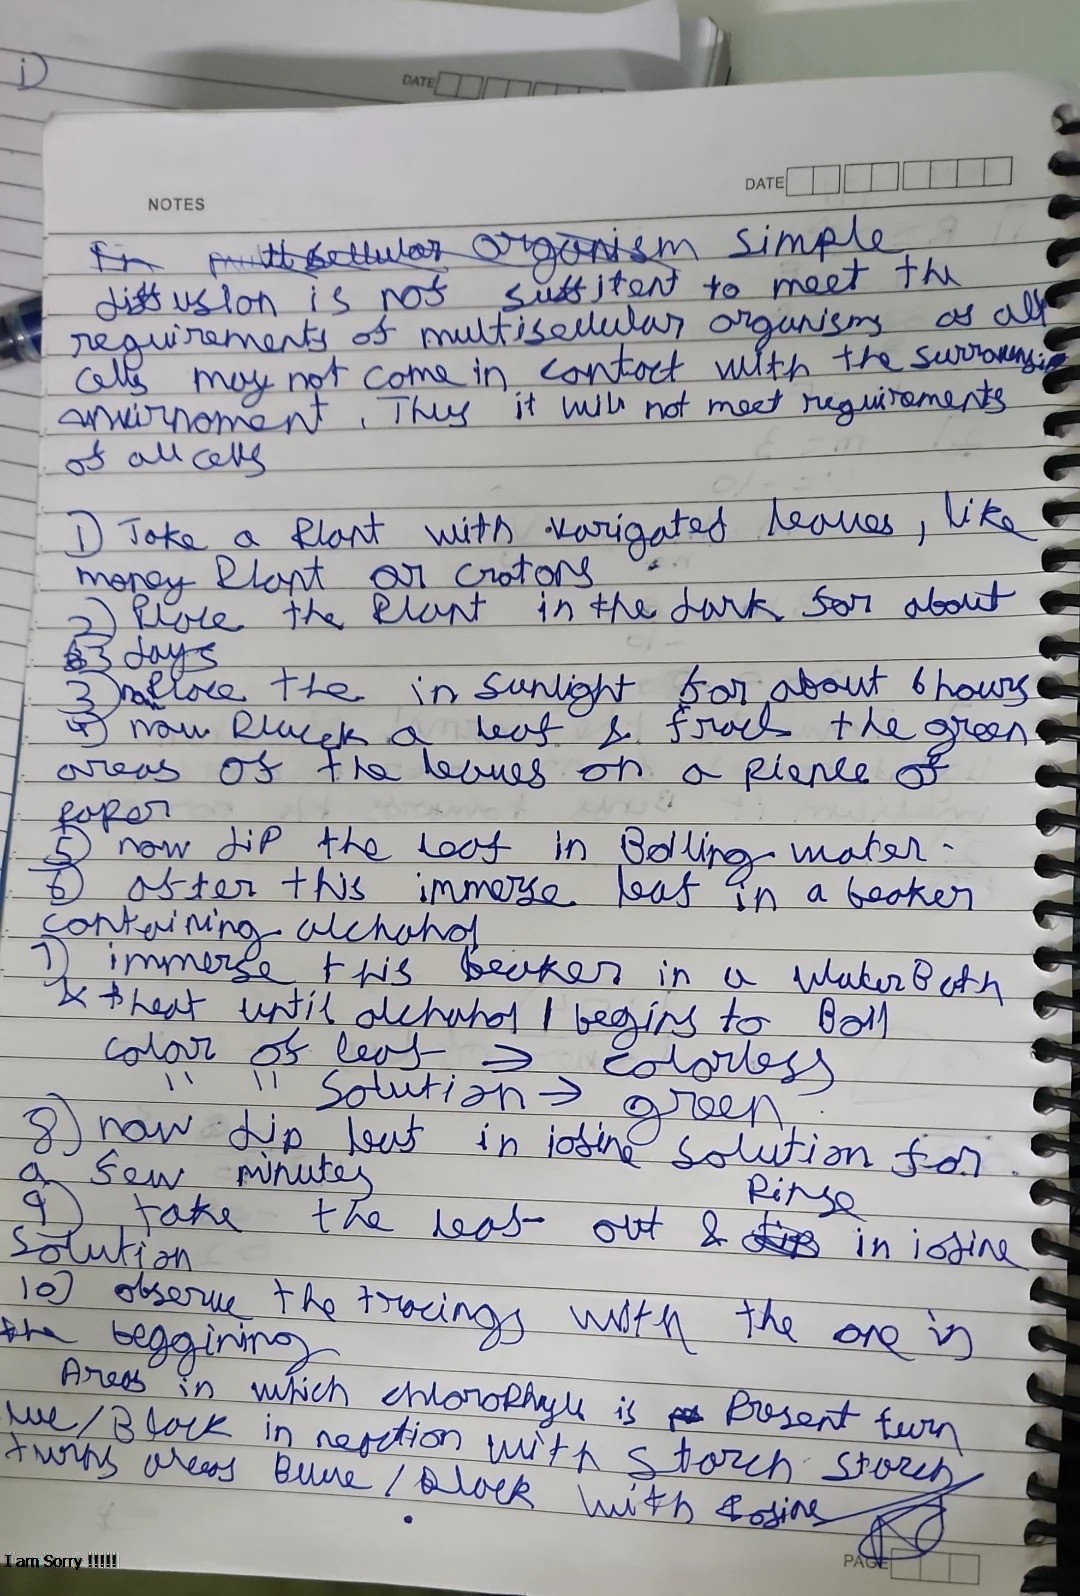 i)
DATE
DATE
NOTES
In multicellular organism simple
diffusion is not suffitent to meet the
requirements of multisellular organisms as all
cells may not come in contact with the
envirnoment. Thus it will not meet requirements
of all cells
1) Take a Plant with varigated leaves, like
money Plant or crotons
2) Place the Plant in the dark for about
3 days
3) now Place the in sunlight for about 6 hours
4) now Pluck a leaf & trace the green
areas of the leaves on a pience of
paper
5) now dip the leaf in Boiling water.
6) after this immerse leaf in a beaker
containing alchohol
7) immerse this beaker in a waterBath
& heat until alchohol begins to Boil
colour of leaf → colorless
" " Solution → green
8) now dip leaf in iodine solution for
a few minutes
Rinse
9) take the leaf out & dip in iodine
solution
10) observe the tracings with the one in
the beggining
Areas in which chlorophyll is Present turn
lue/Black in reaction with starch starch
turns areas Blue/Black with Iodine
I am Sorry !!!!!
PAGE